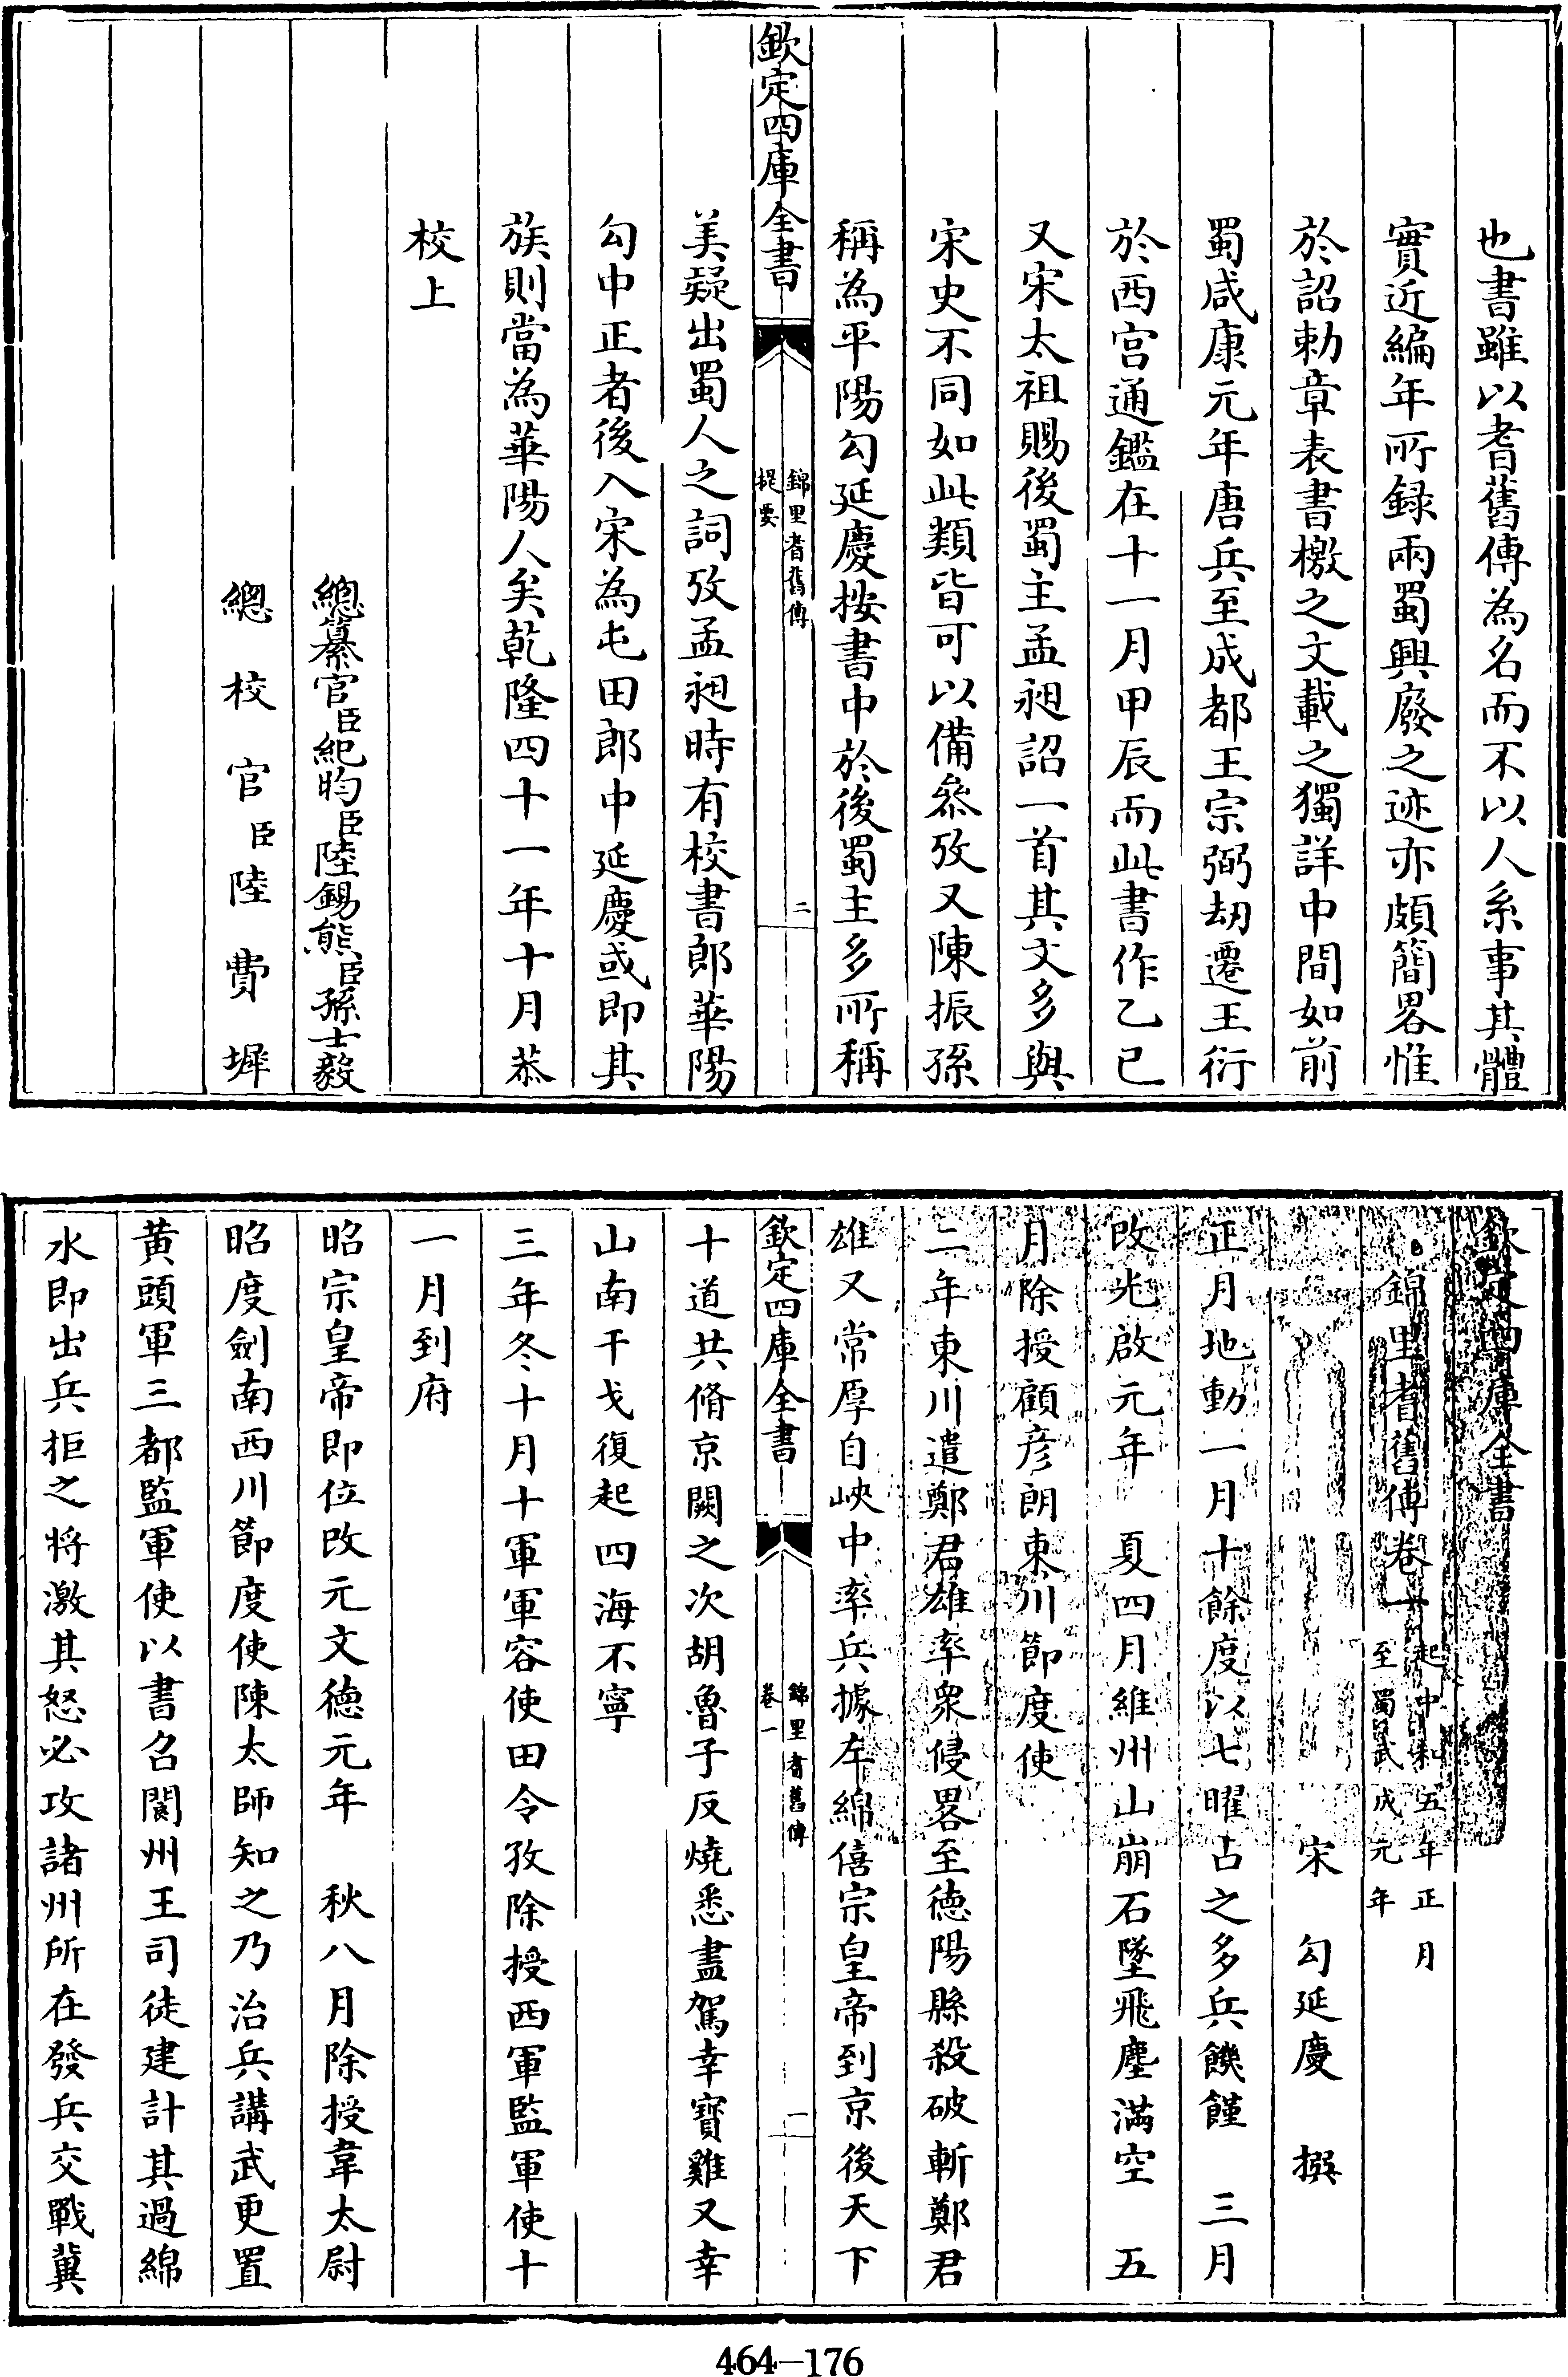 也書雖以耆舊傳為名而不以人系事其體
實近編年所録兩蜀興廢之迹亦頗簡畧惟
於詔勅章表書檄之文載之獨詳中間如前
蜀咸康元年唐兵至成都王宗弼劫遷王衍
於西宫通鑑在十一月甲辰而此書作乙巳
又宋太祖賜後蜀主孟昶詔一首其文多與
宋史不同如此類皆可以備叅攷又陳振孫
稱為平陽勾延慶按書中於後蜀主多所稱
欽定四庫全書
錦里耆舊傳
提要
二
美疑出蜀人之詞攷孟昶時有校書郎華陽
勾中正者後入宋為屯田郎中延慶或即其
族則當為華陽人矣乾隆四十一年十月恭
校上
總纂官臣紀昀臣陸錫熊臣孫士毅
總校官臣陸費墀
欽定四庫全書
錦里耆舊傳卷一
起中和五年正月
至蜀武成元年
宋 勾延慶 撰
正月地動一月十餘度以七曜占之多兵饑饉 三月
改光啟元年 夏四月維州山崩石墜飛塵滿空 五
月除授顧彦朗東川節度使
二年東川遣鄭君雄率衆侵畧至德陽縣殺破斬鄭君
雄又常厚自峽中率兵據左綿僖宗皇帝到京後天下
欽定四庫全書
錦里耆舊傳
卷一
一
十道共脩京闕之次胡魯子反燒悉盡駕幸寳雞又幸
山南干戈復起四海不寧
三年冬十月十軍軍容使田令孜除授西軍監軍使十
一月到府
昭宗皇帝即位改元文德元年 秋八月除授韋太尉
昭度劍南西川節度使陳太師知之乃治兵講武更置
黄頭軍三都監軍使以書召閬州王司徒建計其過綿
水即出兵拒之将激其怒必攻諸州所在發兵交戰冀
464-176